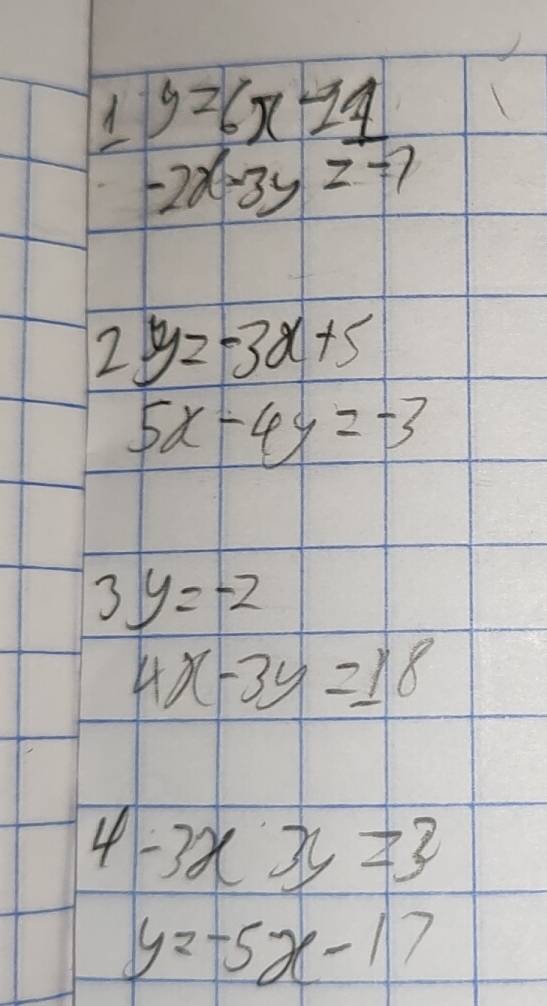 1 y=6x-11
-2x-3y=-7
2 y=-3x+5
5x-4y=-3
3 y=-2
4x-3y=18
4 -3x 3y=3
y=-5x-17